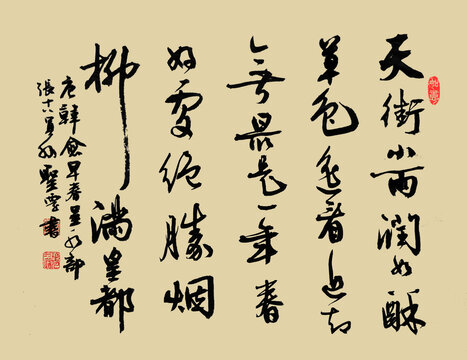 天街小雨潤如酥
草色遥看近却
無最是一年春
好處絕勝烟
柳滿皇都
唐韓愈早春呈水部
張十八員外聖書